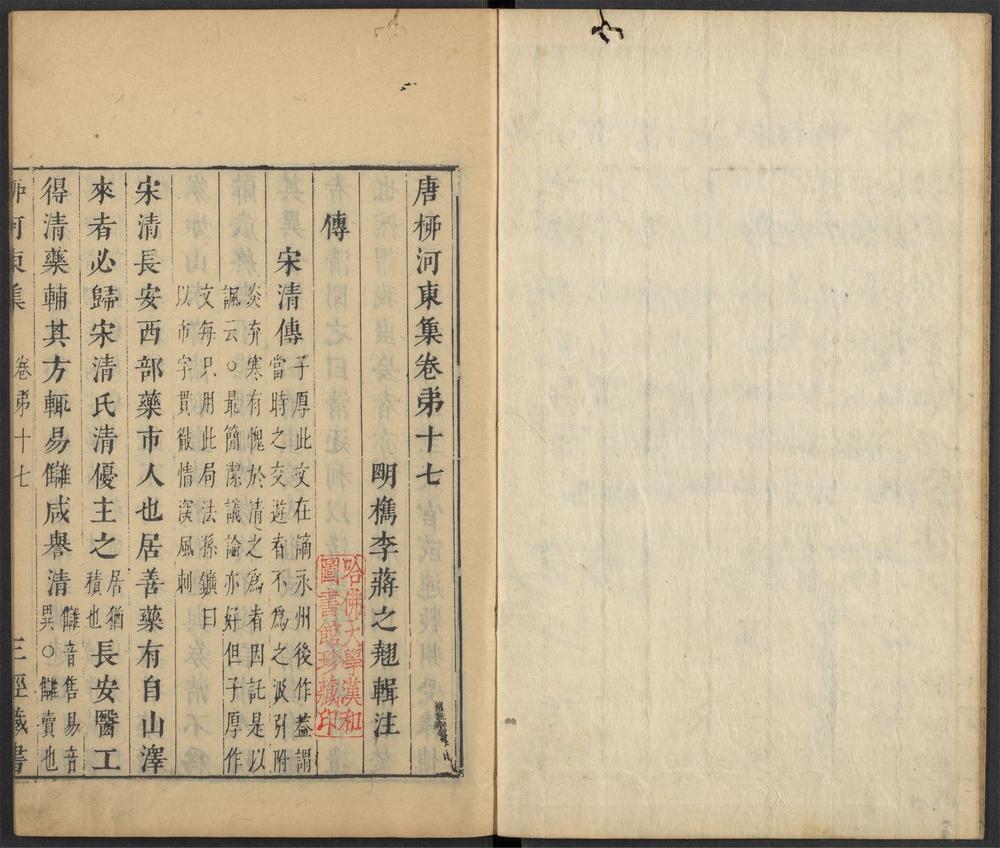 唐柳河東集卷弟十七
明檇李蔣之翹輯注
傳
宋清傳子厚此文在謫永州後作蓋謂
當時之交遊者不為之汲引附
炎弃寒有愧於清之為者因託是以
諷云○最簡潔議論亦好但子厚作
文每只用此局法孫鑛曰
以市字貫徹情深風刺
宋清長安西部藥市人也居善藥有自山澤
來者必歸宋清氏清優主之居猶
積也長安醫工
得清藥輔其方輒易讎咸譽清讎音售易音
異○讎賣也
柳河東集 卷弟十七 三徑藏書
哈佛大學漢和
圖書館珍藏印